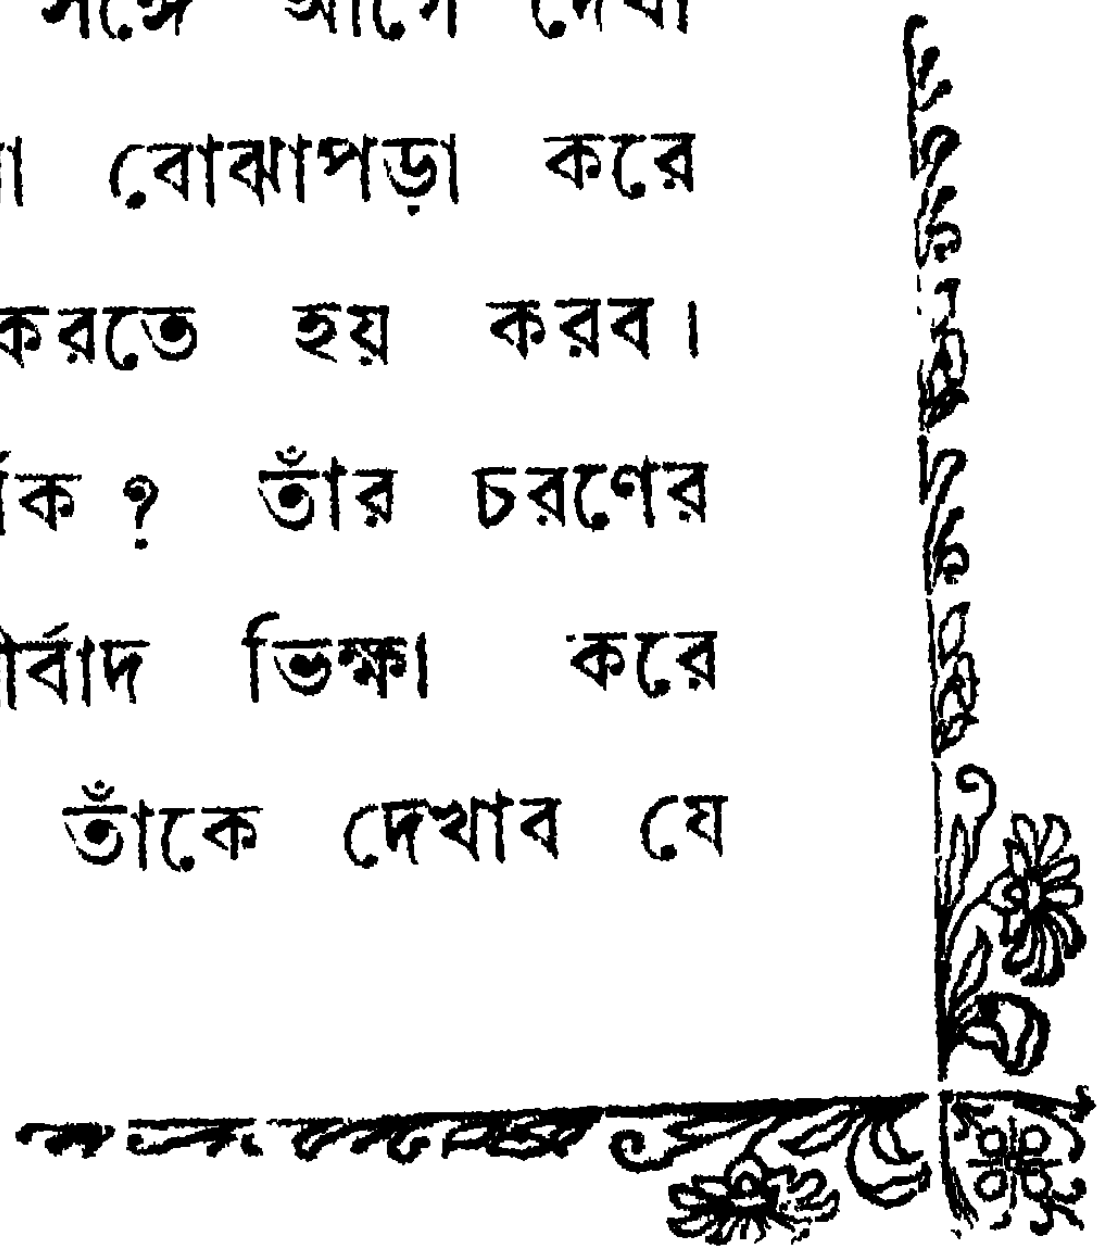 সঙ্গে আগে দেখা
বোঝাপড়া করে
করতে হয় করব।
তাঁর চরণের
ভিক্ষা করে
তাঁকে দেখাব যে